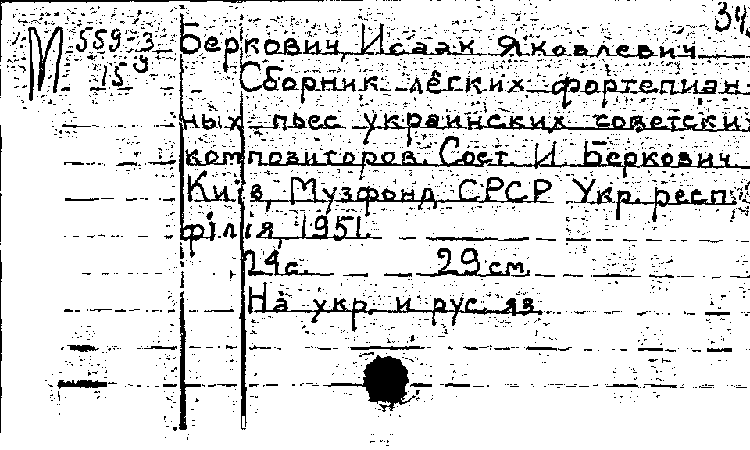 34
М 559-3 Беркович, Исаак Яковлевич
15 Сборник лёгких фортепиан-
ных пьес украинских советски
композиторов. Сост. И. Беркович
Київ, Музфонд СРСР Укр. респ.
філія, 1951.
24 с. 29 см.
На укр. и рус. яз.